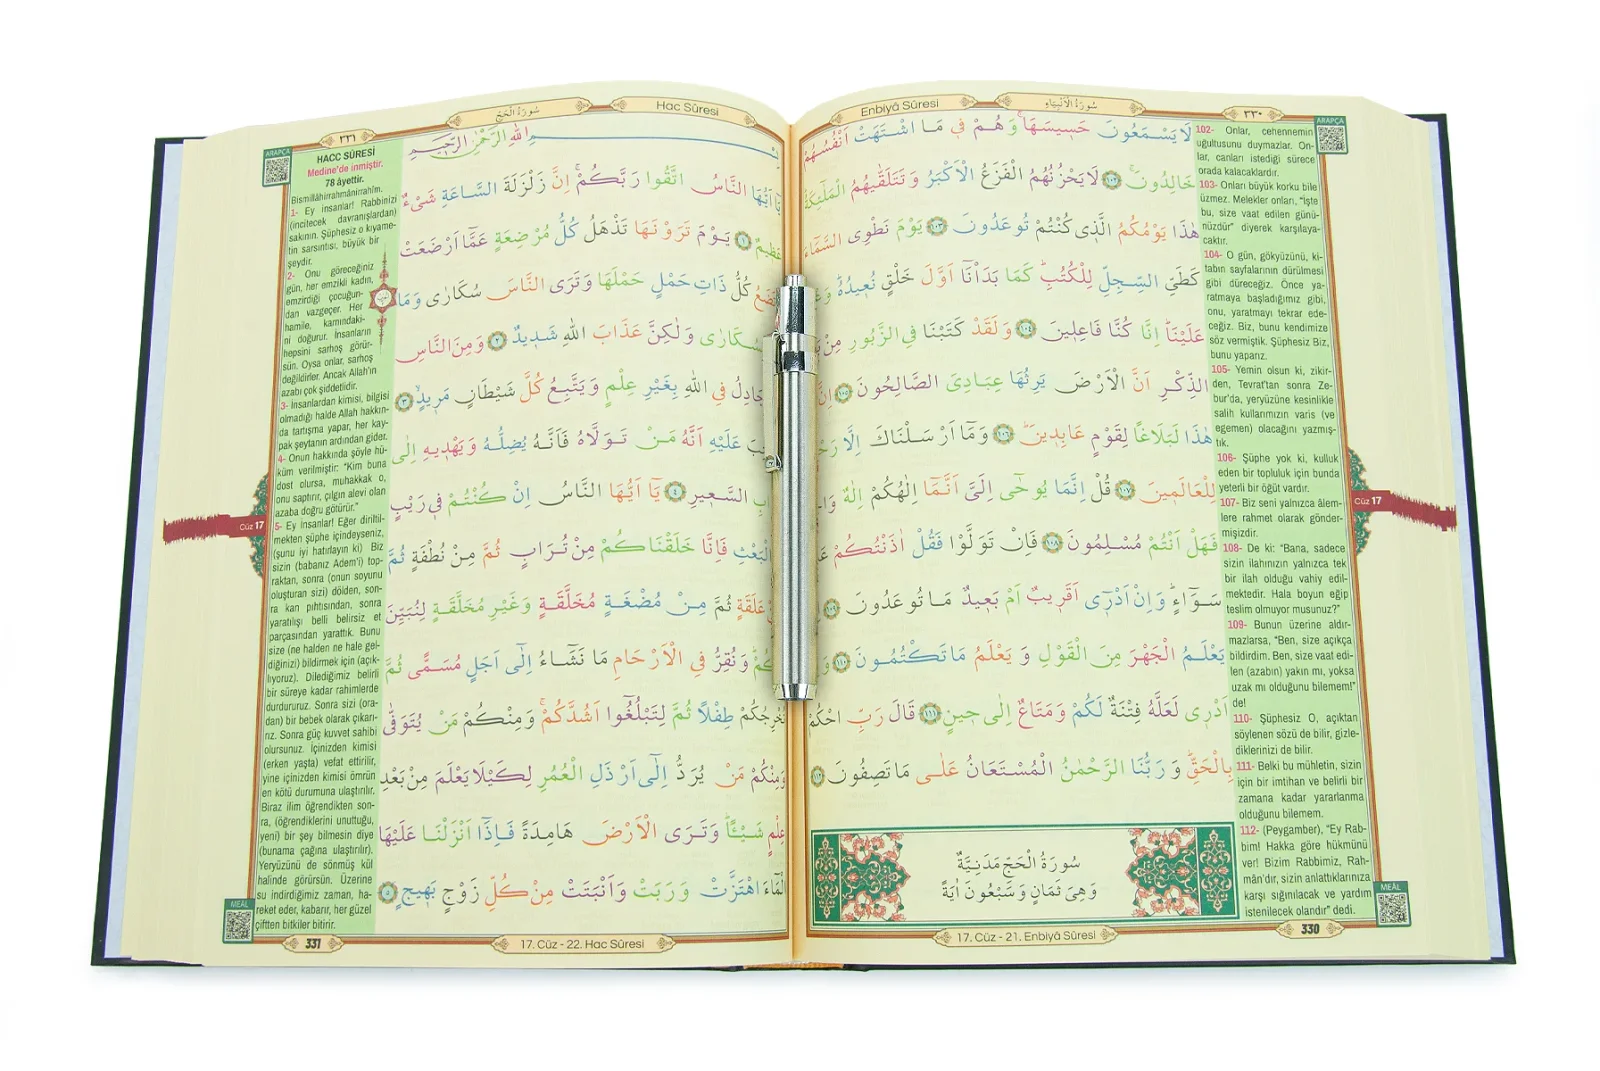 Enbiyâ Sûresi
سُورَةُ الْاَنْبِيَاءِ
٣٣٠
ARAPÇA
لَا يَسْمَعُونَ حَسِيسَهَا وَهُمْ فِي مَا اشْتَهَتْ اَنْفُسُهُمْ
خَالِدُونَ ١٠٢ لَا يَحْزُنُهُمُ الْفَزَعُ الْاَكْبَرُ وَتَتَلَقّٰيهُمُ الْمَلٰٓئِكَةُ
هٰذَا يَوْمُكُمُ الَّذِي كُنْتُمْ تُوعَدُونَ ١٠٣ يَوْمَ نَطْوِي السَّمَٓاءَ
كَطَيِّ السِّجِلِّ لِلْكُتُبِ كَمَا بَدَأْنَٓا اَوَّلَ خَلْقٍ نُعِيدُهُ
عَلَيْنَا اِنَّا كُنَّا فَاعِلِينَ ١٠٤ وَلَقَدْ كَتَبْنَا فِي الزَّبُورِ مِنْ
الذِّكْرِ اَنَّ الْاَرْضَ يَرِثُهَا عِبَادِيَ الصَّالِحُونَ ١٠٥ اِنَّ
هٰذَا لَبَلَاغًا لِقَوْمٍ عَابِدِينَ ١٠٦ وَمَٓا اَرْسَلْنَاكَ اِلَّا
لِلْعَالَمِينَ ١٠٧ قُلْ اِنَّمَا يُوحٰٓى اِلَيَّ اَنَّمَٓا اِلٰهُكُمْ اِلٰهٌ
فَهَلْ اَنْتُمْ مُسْلِمُونَ ١٠٨ فَاِنْ تَوَلَّوْا فَقُلْ اٰذَنْتُكُمْ
سَوَٓاءٍ وَاِنْ اَدْرِٓي اَقَرِيبٌ اَمْ بَعِيدٌ مَا تُوعَدُونَ ١٠٩
يَعْلَمُ الْجَهْرَ مِنَ الْقَوْلِ وَيَعْلَمُ مَا تَكْتُمُونَ ١١٠
اَدْرِي لَعَلَّهُ فِتْنَةٌ لَكُمْ وَمَتَاعٌ اِلٰى حِينٍ ١١١ قَالَ رَبِّ احْكُمْ
بِالْحَقِّ وَرَبُّنَا الرَّحْمٰنُ الْمُسْتَعَانُ عَلٰى مَا تَصِفُونَ ١١٢
سُورَةُ الْحَجِّ مَدَنِيَّةٌ
وَهِيَ ثَمَانٍ وَسَبْعُونَ اٰيَةً
102- Onlar, cehennemin
uğultusunu duymazlar. On-
lar, canları istediği sürece
orada kalacaklardır.
103- Onları büyük korku bile
üzmez. Melekler onları, "İşte
bu, size vaat edilen günü-
nüzdür" diyerek karşılaya-
caktır.
104- O gün, gökyüzünü, ki-
tabın sayfalarının dürülmesi
gibi düreceğiz. Önce ya-
ratmaya başladığımız gibi,
onu, yaratmayı tekrar ede-
ceğiz. Biz, bunu kendimize
söz vermiştik. Şüphesiz Biz,
bunu yaparız.
105- Yemin olsun ki, zikir-
den, Tevrat'tan sonra Ze-
bur'da, yeryüzüne kesinlikle
salih kullarımızın varis (ve
egemen) olacağını yazmış-
tık.
106- Şüphe yok ki, kulluk
eden bir topluluk için bunda
yeterli bir öğüt vardır.
107- Biz seni yalnızca âlem-
lere rahmet olarak gönder-
mişizdir.
108- De ki: "Bana, sadece
sizin ilahınızın yalnızca tek
bir ilah olduğu vahiy edil-
mektedir. Hala boyun eğip
teslim olmuyor musunuz?"
109- Bunun üzerine aldır-
mazlarsa, "Ben, size açıkça
bildirdim. Ben, size vaat edi-
len (azabın) yakın mı, yoksa
uzak mı olduğunu bilemem!"
de!
110- Şüphesiz O, açıktan
söylenen sözü de bilir, gizle-
diklerinizi de bilir.
111- Belki bu mühletin, sizin
için bir imtihan ve belirli bir
zamana kadar yararlanma
olduğunu bilemem.
112- (Peygamber), "Ey Rab-
bim! Hakka göre hükmünü
ver! Bizim Rabbimiz, Rah-
mân'dır, sizin anlattıklarınıza
karşı sığınılacak ve yardım
istenilecek olandır" dedi.
Cüz 17
MEÂL
17. Cüz - 21. Enbiyâ Sûresi
330
٣٣١
سُورَةُ الْحَجِّ
Hac Sûresi
ARAPÇA
اللّٰهِ الرَّحْمٰنِ الرَّحِيمِ
يَٓا اَيُّهَا النَّاسُ اتَّقُوا رَبَّكُمْ اِنَّ زَلْزَلَةَ السَّاعَةِ شَيْءٌ
عَظِيمٌ ١ يَوْمَ تَرَوْنَهَا تَذْهَلُ كُلُّ مُرْضِعَةٍ عَمَّٓا اَرْضَعَتْ
كُلُّ ذَاتِ حَمْلٍ حَمْلَهَا وَتَرَى النَّاسَ سُكَارٰى وَمَا
بِسُكَارٰى وَلٰكِنَّ عَذَابَ اللّٰهِ شَدِيدٌ ٢ وَمِنَ النَّاسِ
يُجَادِلُ فِي اللّٰهِ بِغَيْرِ عِلْمٍ وَيَتَّبِعُ كُلَّ شَيْطَانٍ مَرِيدٍ ٣
عَلَيْهِ اَنَّهُ مَنْ تَوَلَّاهُ فَاَنَّهُ يُضِلُّهُ وَيَهْدِيهِ اِلٰى
السَّعِيرِ ٤ يَٓا اَيُّهَا النَّاسُ اِنْ كُنْتُمْ فِي رَيْبٍ
الْبَعْثِ فَاِنَّا خَلَقْنَاكُمْ مِنْ تُرَابٍ ثُمَّ مِنْ نُطْفَةٍ ثُمَّ
عَلَقَةٍ ثُمَّ مِنْ مُضْغَةٍ مُخَلَّقَةٍ وَغَيْرِ مُخَلَّقَةٍ لِنُبَيِّنَ
وَنُقِرُّ فِي الْاَرْحَامِ مَا نَشَٓاءُ اِلٰٓى اَجَلٍ مُسَمًّى ثُمَّ
نُخْرِجُكُمْ طِفْلًا ثُمَّ لِتَبْلُغُٓوا اَشُدَّكُمْ وَمِنْكُمْ مَنْ يُتَوَفّٰى
وَمِنْكُمْ مَنْ يُرَدُّ اِلٰٓى اَرْذَلِ الْعُمُرِ لِكَيْلَا يَعْلَمَ مِنْ بَعْدِ
عِلْمٍ شَيْـًٔا وَتَرَى الْاَرْضَ هَامِدَةً فَاِذَٓا اَنْزَلْنَا عَلَيْهَا
الْمَٓاءَ اهْتَزَّتْ وَرَبَتْ وَاَنْبَتَتْ مِنْ كُلِّ زَوْجٍ بَهِيجٍ ٥
HACC SÛRESİ
Medine'de inmiştir.
78 âyettir.
Bismillâhirrahmânirrahîm.
1- Ey insanlar! Rabbinizi
(incitecek davranışlardan)
sakının. Şüphesiz o kıyame-
tin sarsıntısı, büyük bir
şeydir.
2- Onu göreceğiniz
gün, her emzikli kadın,
emzirdiği çocuğun-
dan vazgeçer. Her
hamile, karnındaki-
ni doğurur. İnsanların
hepsini sarhoş görür-
sün. Oysa onlar, sarhoş
değildirler. Ancak Allah'ın
azabı çok şiddetlidir.
3- İnsanlardan kimisi, bilgisi
olmadığı halde Allah hakkın-
da tartışma yapar, her kay-
pak şeytanın ardından gider.
4- Onun hakkında şöyle hü-
küm verilmiştir: "Kim buna
dost olursa, muhakkak o,
onu saptırır, çılgın alevi olan
azaba doğru götürür."
5- Ey insanlar! Eğer diriltil-
mekten şüphe içindeyseniz,
(şunu iyi hatırlayın ki) Biz
sizin (babanız Adem'i) top-
raktan, sonra (onun soyunu
oluşturan sizi) dölden, son-
ra kan pıhtısından, sonra
yaratılışı belli belirsiz et
parçasından yarattık. Bunu
size (ne halden ne hale gel-
diğinizi) bildirmek için (açık-
lıyoruz). Dilediğimiz belirli
bir süreye kadar rahimlerde
durdururuz. Sonra sizi (ora-
dan) bir bebek olarak çıkarı-
rız. Sonra güç kuvvet sahibi
olursunuz. İçinizden kimisi
(erken yaşta) vefat ettirilir,
yine içinizden kimisi ömrün
en kötü durumuna ulaştırılır.
Biraz ilim öğrendikten son-
ra, (öğrendiklerini unuttuğu,
yeni) bir şey bilmesin diye
(bunama çağına ulaştırılır).
Yeryüzünü de sönmüş kül
halinde görürsün. Üzerine
su indirdiğimiz zaman, ha-
reket eder, kabarır, her güzel
çiftten bitkiler bitirir.
Cüz 17
MEÂL
331
17. Cüz - 22. Hac Sûresi